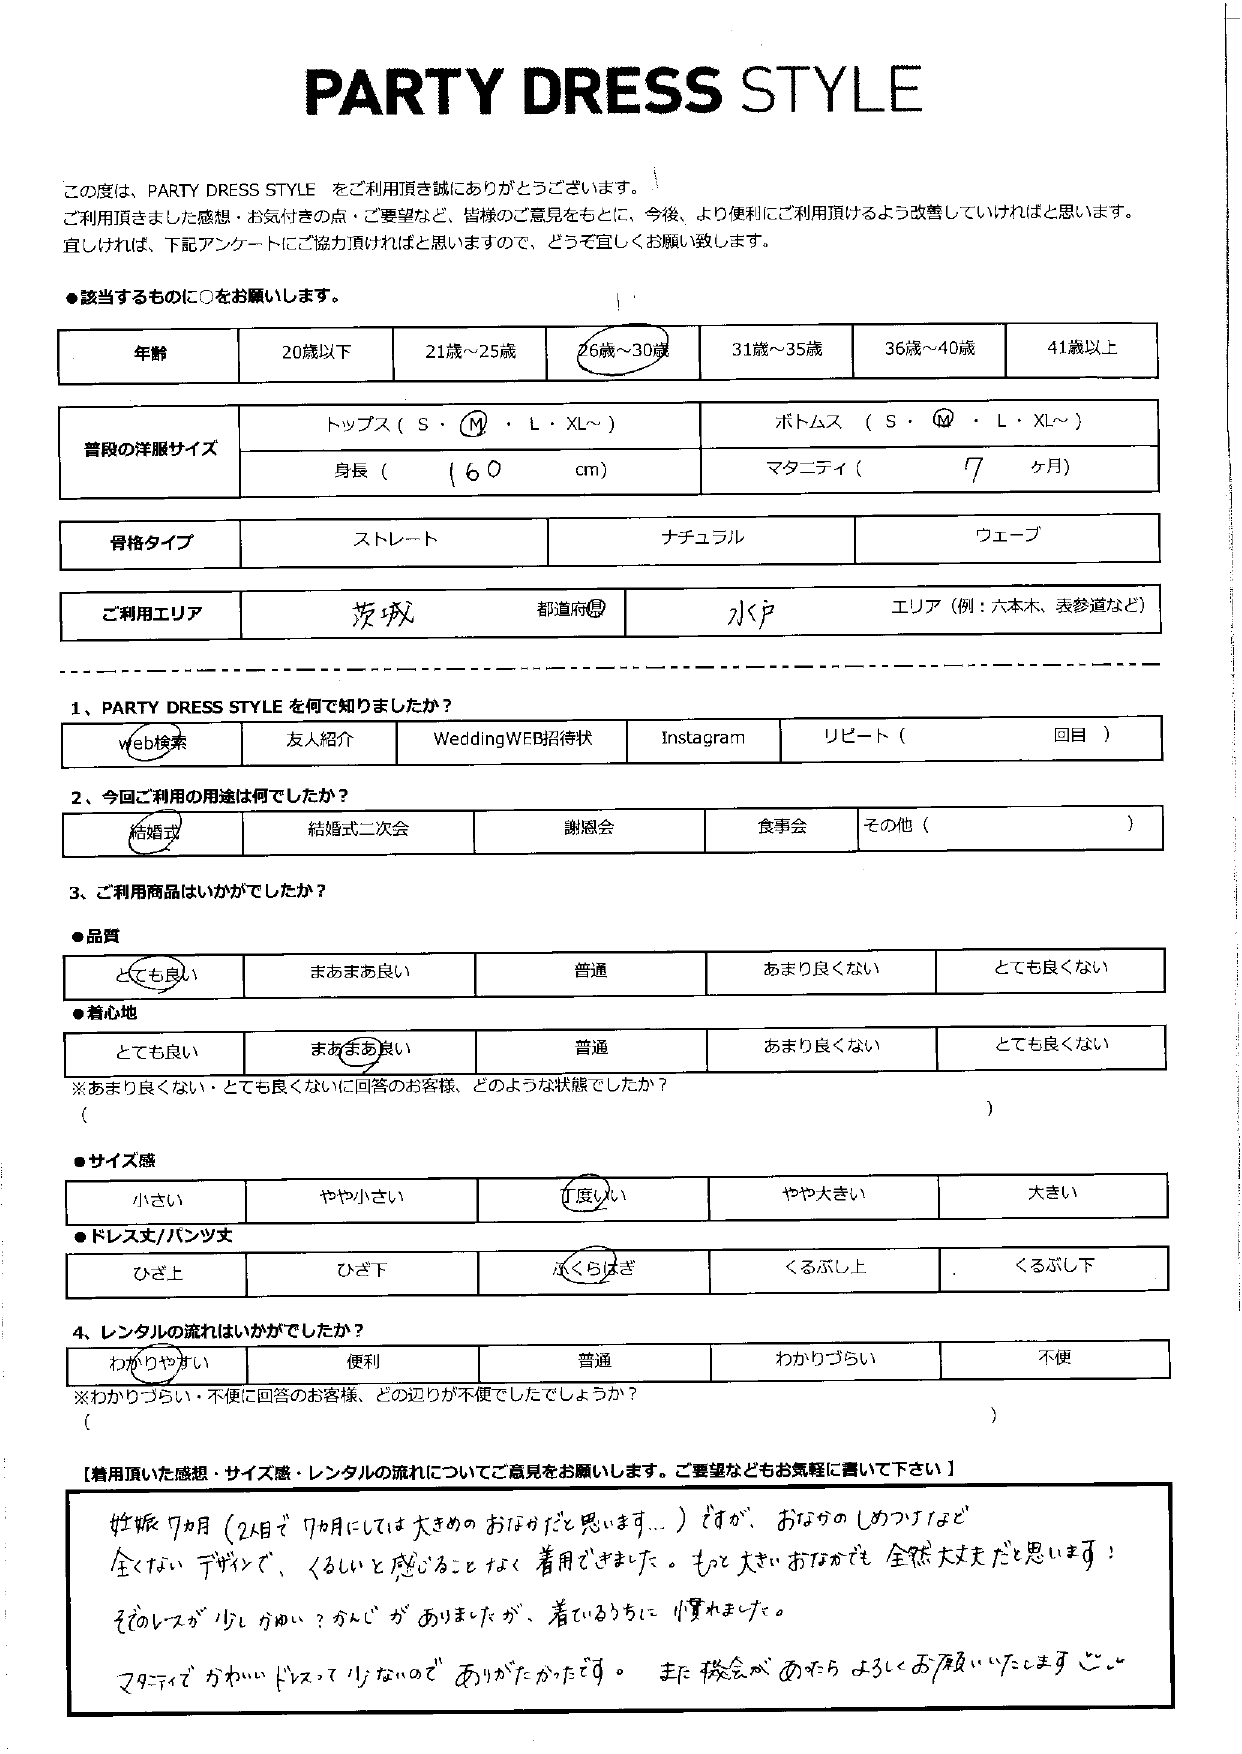 PARTY DRESS STYLE
この度は、PARTY DRESS STYLE をご利用頂き誠にありがとうございます。
ご利用頂きました感想・お気付きの点・ご要望など、皆様のご意見をもとに、今後、より便利にご利用頂けるよう改善していければと思います。
宜しければ、下記アンケートにご協力頂ければと思いますので、どうぞ宜しくお願い致します。
●該当するものに○をお願いします。
年齢 20歳以下 21歳～25歳 26歳～30歳 31歳～35歳 36歳～40歳 41歳以上
普段の洋服サイズ トップス ( S ・ M ・ L ・ XL～ ) ボトムス ( S ・ M ・ L ・ XL～ )
身長 ( 160 cm) マタニティ ( 7 ヶ月)
骨格タイプ ストレート ナチュラル ウェーブ
ご利用エリア 茨城 都道府県 水戸 エリア（例：六本木、表参道など）
1、PARTY DRESS STYLE を何で知りましたか？
web検索 友人紹介 WeddingWEB招待状 Instagram リピート ( 回目 )
2、今回ご利用の用途は何でしたか？
結婚式 結婚式二次会 謝恩会 食事会 その他 ( )
3、ご利用商品はいかがでしたか？
●品質
とても良い まあまあ良い 普通 あまり良くない とても良くない
●着心地
とても良い まあまあ良い 普通 あまり良くない とても良くない
※あまり良くない・とても良くないに回答のお客様、どのような状態でしたか？
( )
●サイズ感
小さい やや小さい 丁度いい やや大きい 大きい
●ドレス丈/パンツ丈
ひざ上 ひざ下 ふくらはぎ くるぶし上 くるぶし下
4、レンタルの流れはいかがでしたか？
わかりやすい 便利 普通 わかりづらい 不便
※わかりづらい・不便に回答のお客様、どの辺りが不便でしたでしょうか？
( )
【着用頂いた感想・サイズ感・レンタルの流れについてご意見をお願いします。ご要望などもお気軽に書いて下さい】
妊娠7カ月 (2人目で 7カ月にしては大きめの おなかだと思います…) ですが、おなかの しめつけなど
全くない デザインで、くるしいと感じることなく 着用できました。もっと大きいおなかでも 全然大丈夫だと思います！
そでのレースが 少し かゆい？かんじ が ありましたが、着ているうちに 慣れました。
マタニティで かわいい ドレスって 少ないので ありがたかったです。 また 機会が あったら よろしくお願いいたします